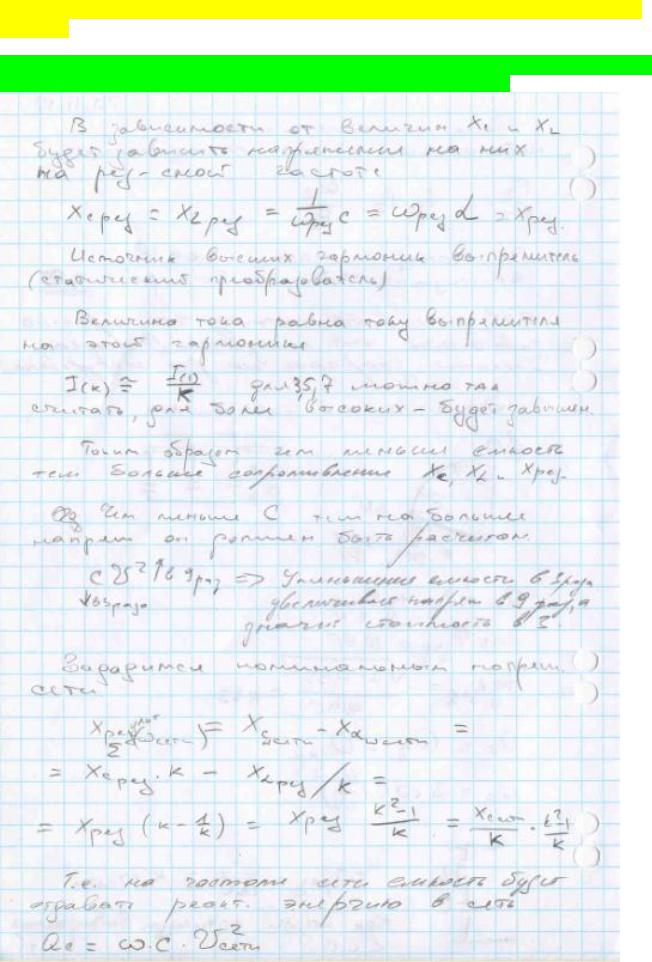 В зависимости от величин X₁ и X₂
будет зависить напряжение на них
на рез-сной частоте
Xс рез = X₂ рез = 1/(ωрез C) = ωрез L = Xрез.
Источник высших гармоник выпрямитель
(статический преобразователь)
Величина тока равна току выпрямителя
на этой гармонике
I(к) ≅ I(1)/К для 3,5,7 можно так
считать, для более высоких – будет завышен.
Таким образом чем меньше емкость
тем больше сопротивление Xc, X₂ и Xрез.
Чем меньше C тем на больше
напряж он должен быть расчитан
C U² ↑ в 9 раз => Уменьшение емкости в 3 раза
↓ в 3 раза увеличивает напряж в 9 раз, а
значит стоимость в 3.
Зададимся номинальным напряж.
сети
Xрез Σ (ωсети) = Xс сети - X₂ ωсети =
= Xс рез · к - X₂ рез / к =
= Xрез (к - 1/к) = Xрез (к²-1)/к = Xс сети/к · (к²-1)/к
Т.е. на частоте сети емкость будет
отдавать реакт. энергию в сеть
Qc = ω·c·U²сети